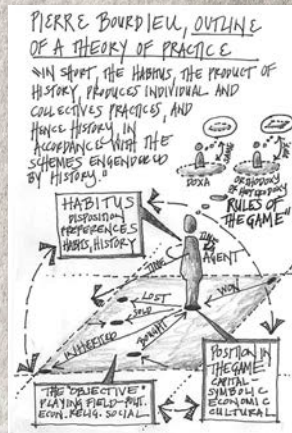 PIERRE BOURDIEU, OUTLINE
OF A THEORY OF PRACTICE
"IN SHORT, THE HABITUS, THE PRODUCT OF
HISTORY, PRODUCES INDIVIDUAL AND
COLLECTIVES PRACTICES, AND
HENCE HISTORY, IN
ACCORDANCE WITH THE
SCHEMES ENGENDERED
BY HISTORY."
DOXA
ORTHODOXY
HETERODOXY
"RULES OF
THE GAME"
HABITUS
DISPOSITION
PREFERENCES
HABITS, HISTORY
TIME
AGENT
TIME
LOST
WON
SOLD
BOUGHT
INHERITED
POSITION IN
THE GAME:
CAPITAL
SYMBOLIC
ECONOMIC
CULTURAL
THE "OBJECTIVE"
PLAYING FIELD-POLIT.
ECON. RELIG. SOCIAL